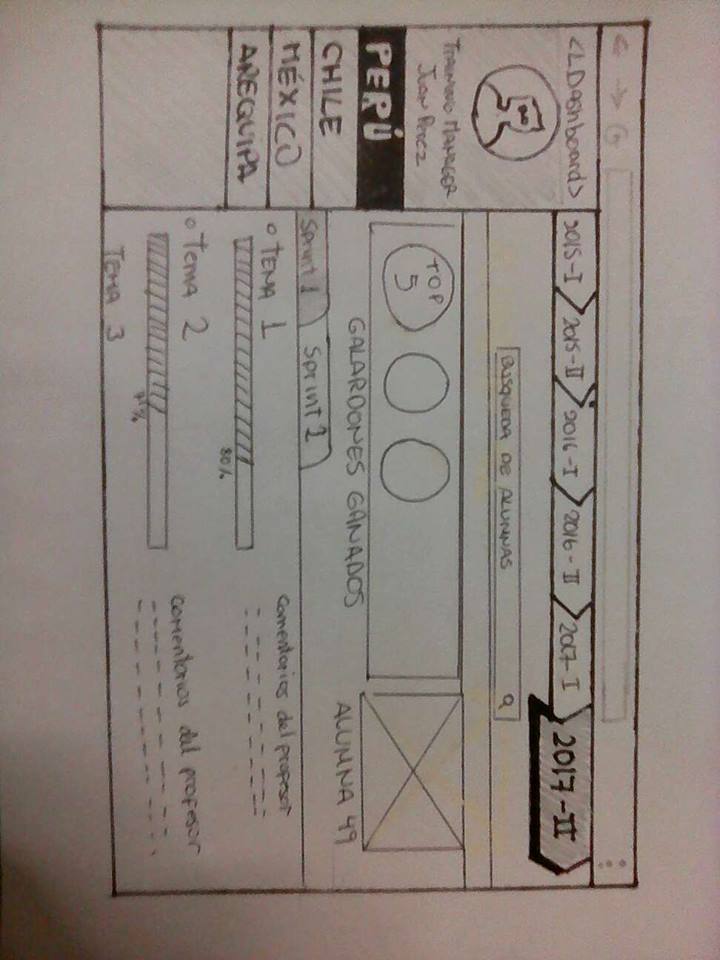 <LDashboard>
Training Manager
Juan Perez
PERÚ
CHILE
MÉXICO
AREQUIPA
2015-I
2015-II
2016-I
2016-II
2017-I
2017-II
BUSQUEDA DE ALUMNAS
TOP
5
GALARDONES GANADOS
ALUMNA 49
Sprint 1
Sprint 2
TEMA 1
80%
comentarios del profesor
Tema 2
71%
comentarios del profesor
TEMA 3